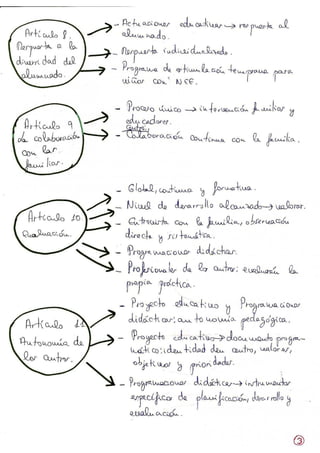 Artículo 8.
Respuesta a la
diversidad del
alumnado.
- Actuaciones educativas → respuesta al
alumnado.
- Respuesta individualizada.
- Programa de estimulación temprana para
niños con NEE.
Artículo 9
la colaboración
con las
familias.
- Proceso único → intervención familiar y
educadores.
- Colaboración continua con la familia.
Artículo 10
Evaluación.
- Global, continua y formativa.
- Nivel de desarrollo alcanzado → valorar.
- Entrevista con la familia, observación
directa y sistemática.
- Programaciones didácticas.
- Profesionales de los centros: evaluarán la
propia práctica.
Artículo 11
Autonomía de
los centros.
- Proyecto educativo y Programaciones
didácticas: autonomía pedagógica.
- Proyecto educativo → documento progra-
mático: identidad del centro, valores,
objetivos y prioridades.
- Programaciones didácticas → instrumentos
específicos de planificación, desarrollo y
evaluación.
3